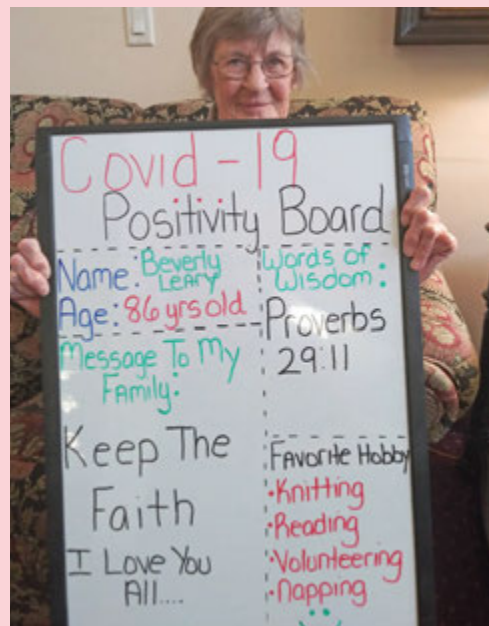 Covid-19
Positivity Board
Name: Beverly
Leary
Age: 86 yrs old
Message To My
Family:
Keep The
Faith
I Love You
All....
Words of
Wisdom:
Proverbs
29:11
Favorite Hobby
·Knitting
·Reading
·Volunteering
·Napping